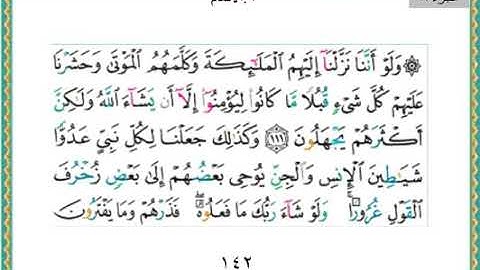 ۞ وَلَوْ أَنَّنَا نَزَّلْنَآ إِلَيْهِمُ الْمَلَٰٓئِكَةَ وَكَلَّمَهُمُ الْمَوْتَىٰ وَحَشَرْنَا
عَلَيْهِمْ كُلَّ شَىْءٍ قُبُلًا مَّا كَانُوا۟ لِيُؤْمِنُوٓا۟ إِلَّآ أَن يَشَآءَ اللَّهُ وَلَٰكِنَّ
أَكْثَرَهُمْ يَجْهَلُونَ ١١١ وَكَذَٰلِكَ جَعَلْنَا لِكُلِّ نَبِىٍّ عَدُوًّا
شَيَٰطِينَ الْإِنسِ وَالْجِنِّ يُوحِى بَعْضُهُمْ إِلَىٰ بَعْضٍ زُخْرُفَ
الْقَوْلِ غُرُورًا ۚ وَلَوْ شَآءَ رَبُّكَ مَا فَعَلُوهُ ۖ فَذَرْهُمْ وَمَا يَفْتَرُونَ
١٤٢